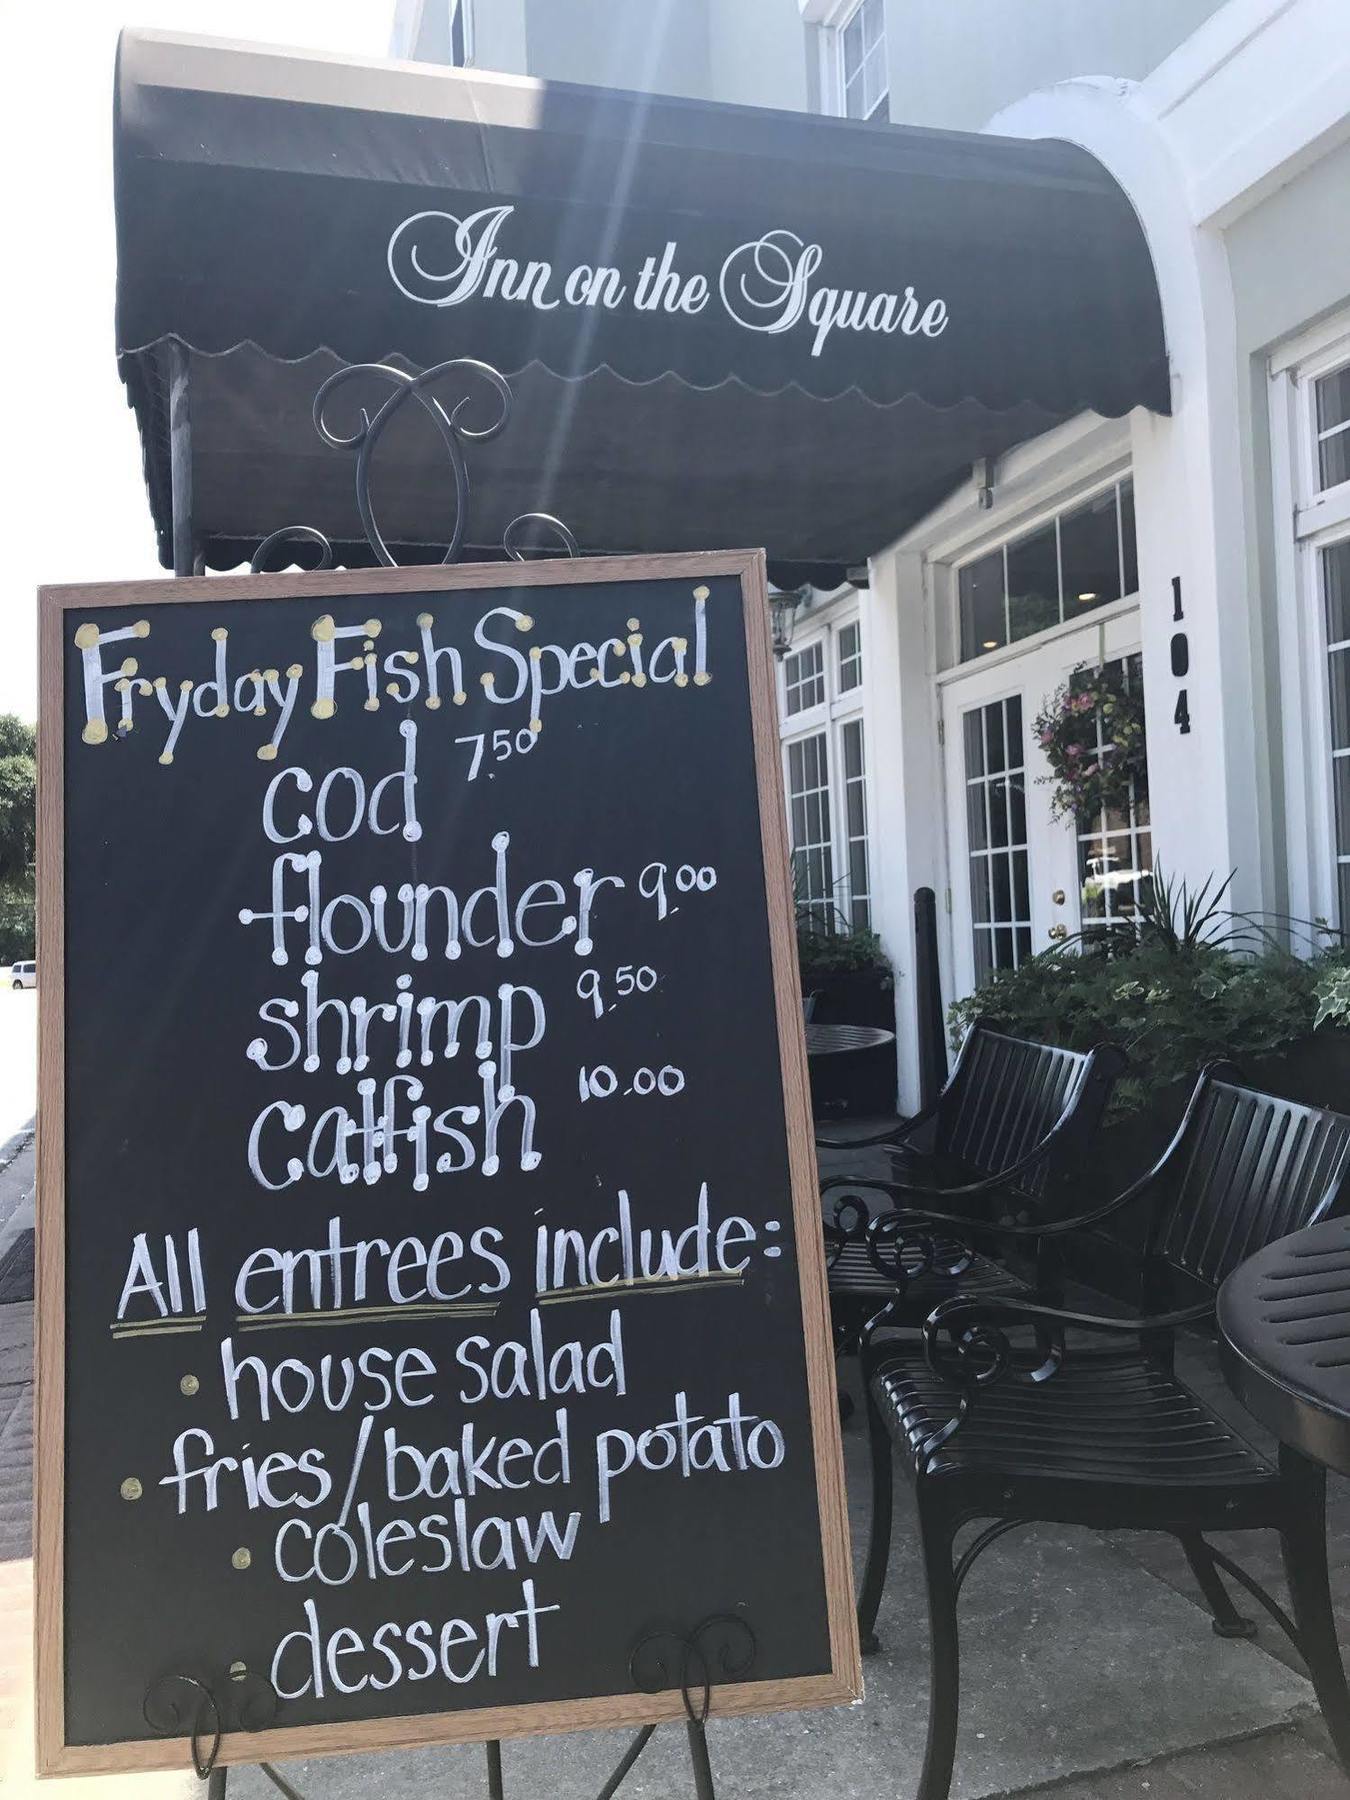 Inn on the Square
104
Fryday Fish Special
cod 7.50
flounder 9.00
shrimp 9.50
catfish 10.00
All entrees include:
• house salad
• fries/baked potato
• coleslaw
• dessert